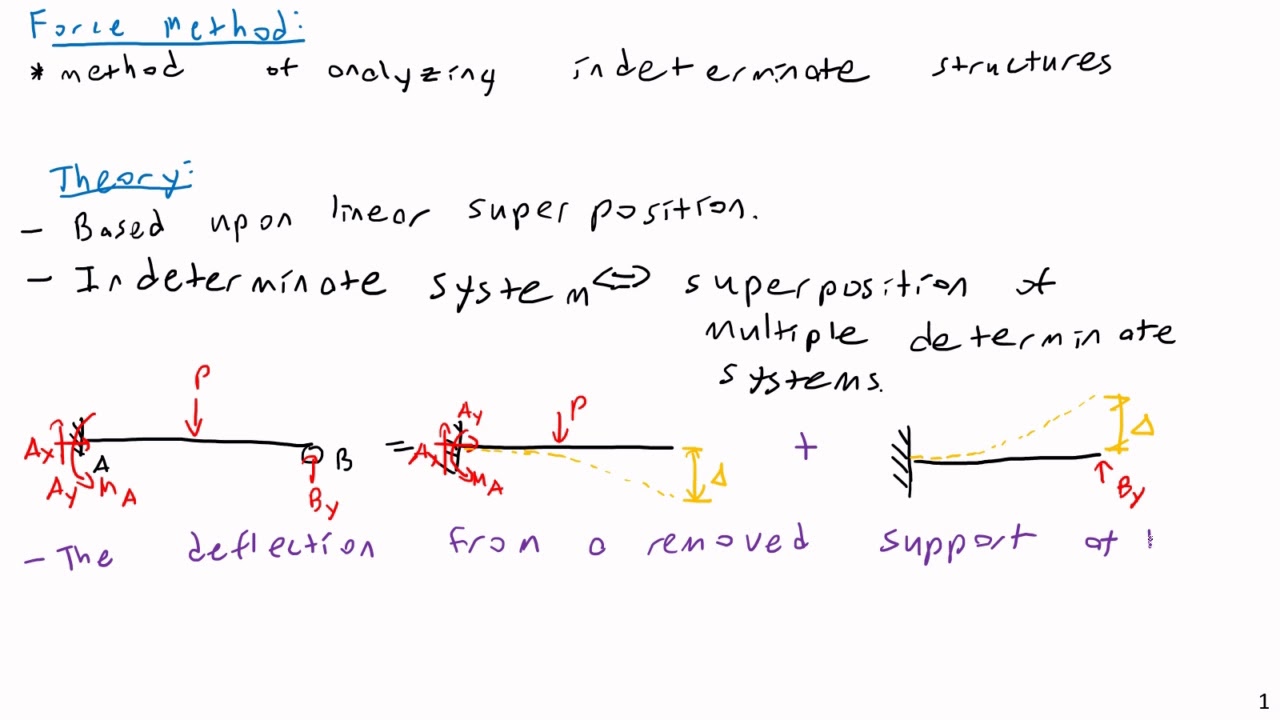 Force method:
* method of analyzing indeterminate structures
Theory:
- Based upon linear superposition.
- Indeterminate system <=> superposition of
multiple determinate
systems.
P
Ax
A
Ay
MA
B
By
=
Ay
Ax
MA
P
Δ
+
Δ
By
- The deflection from a removed support at
1